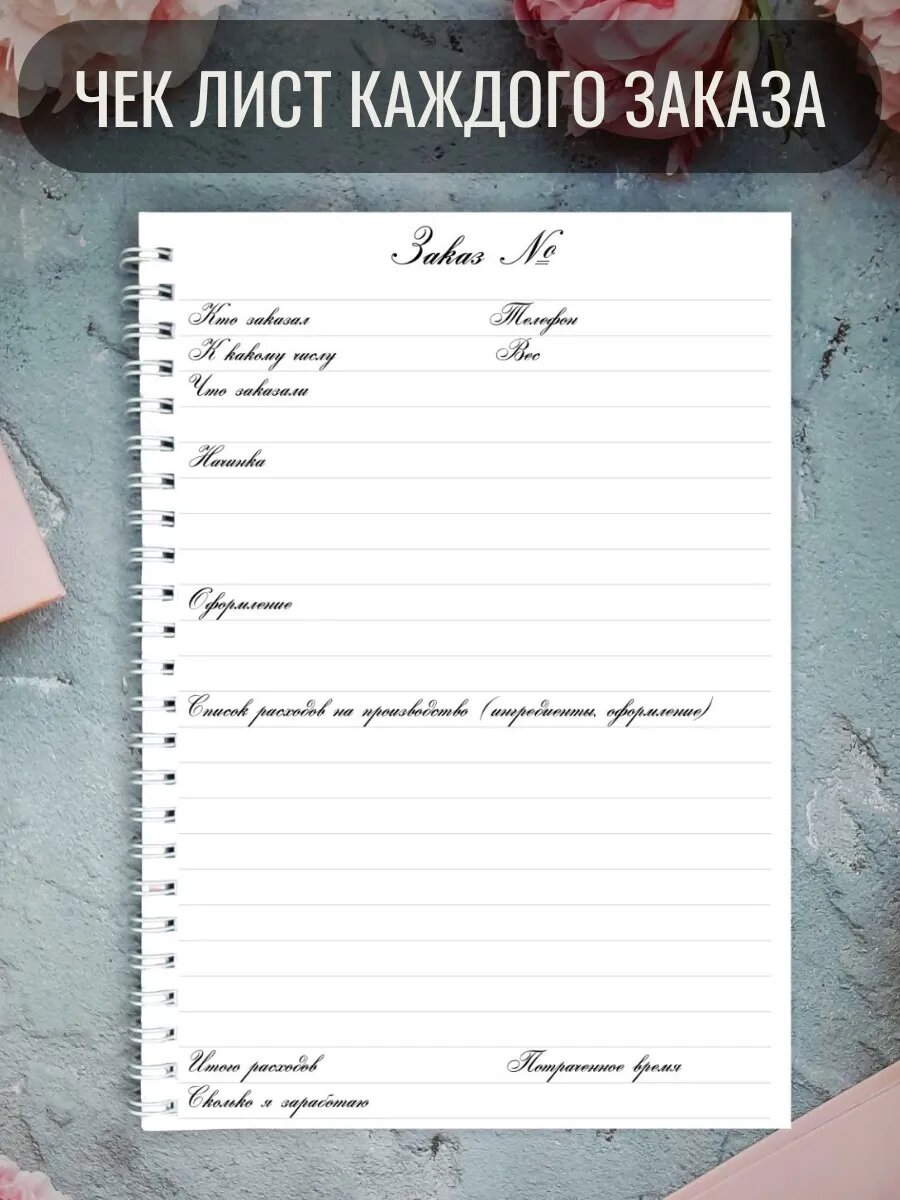 ЧЕК ЛИСТ КАЖДОГО ЗАКАЗА
Заказ №
Кто заказал Телефон
К какому числу Вес
Что заказали
Начинка
Оформление
Список расходов на производство (ингредиенты, оформление)
Итого расходов Потраченное время
Сколько я заработаю